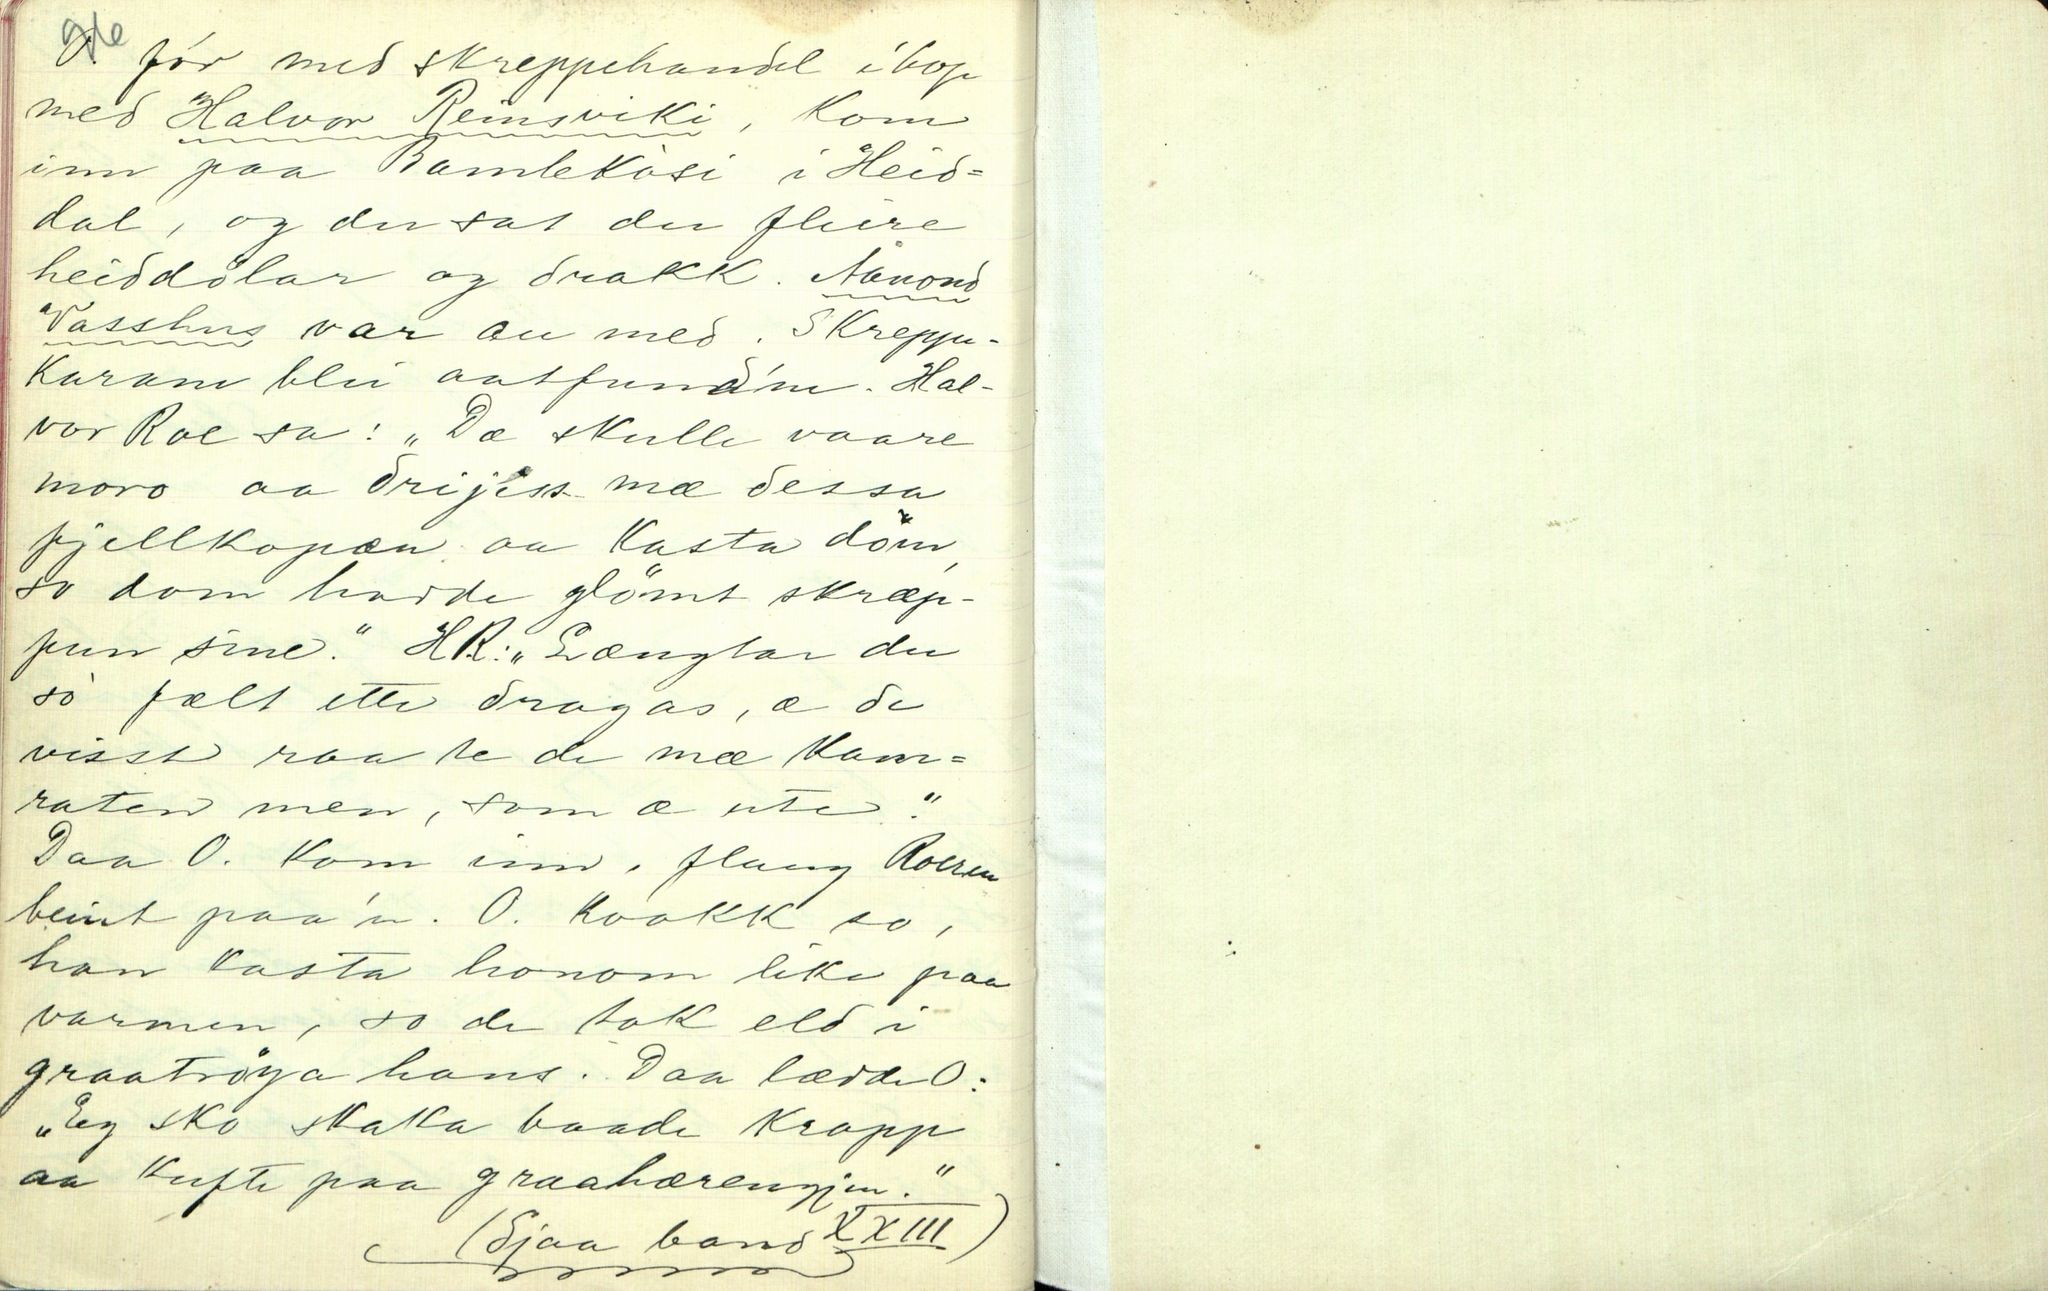 O. för med skreppehandel ihop
med Halvor Reinsviki, kom
inn paa Bamlekåsi i Heid=
dal, og der sat der fleire
heiddölar og drakk. Aanond
Vasshus var au med. Skreppu-
karane blei aatfundne. Hal-
vor Roe sa: „Dæ skulle vaare
moro aa drijass mæ dessa
fjellkopæn aa kasta döm,
so dom hadde glömt skræp-
pun sine." H R.: „Længtar du
so fælt ette dragas, æ de
visst raa te de mæ kam=
raten men, som æ ute."
Daa O. kom inn, flaug Roeren
beint paa'n. O. kvakk so,
han kasta honom like paa
varmen, so de tok eld i
graatröya hans. Daa lædde O:
„Eg sko skaka baade kropp
aa kufte paa graabærengjen."
(Sjaa band XXIII)